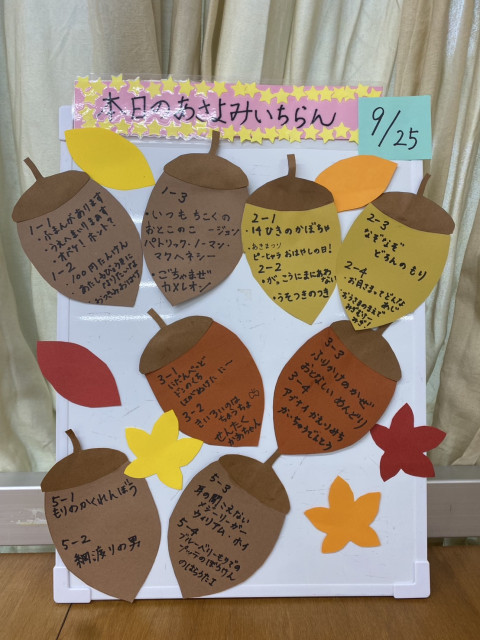 本日のあさよみいちらん
9/25
1-1
・ふまんがあります
うえへまいりまぁす
すべり ホット!
1-2
・100円たんけん
・おっちょこおばけ
1-3
・いつもちこくの
おとこのこ -ジョン
パトリック・ノーマン・
マクヘネシー
・ごちゃまぜ
カメレオン
2-1
・14ひきのかぼちゃ
あきまつり
ピーちゃう おはやしの日!
2-2
・がっこうにまにあわ
ない
・うそつきのつき
2-3
なぞなぞ
どろんのもり
2-4
・お月さまってどんな
あじ
3-1
にだんべっど
3-2
きいろいのは
ちょうちょ
せんたく
かあちゃん
3-3
ふりかけのかぜ
おとなしいめんどり
3-4
アブナイかえりみち
かいちゅうでんとう
5-1
もりのかくれんぼう
5-2
綱渡りの男
5-3
耳の聞こえない
メジャーリーガー
ウィリアム・ホイ
5-4
ブルーベリーもりでの
プッテのぼうけん
のはらうた